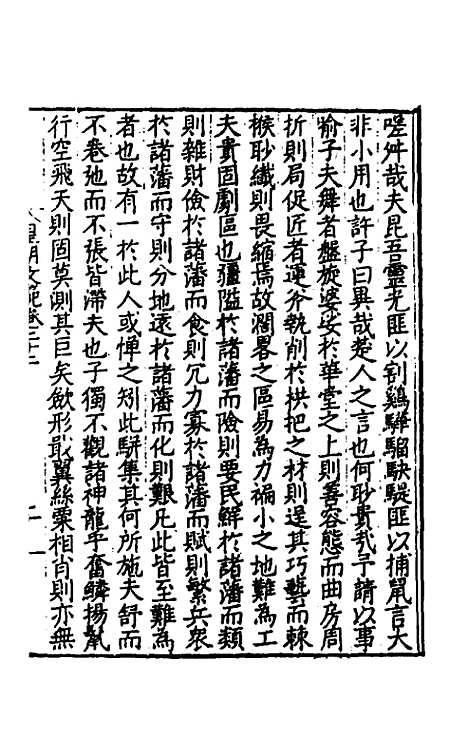 嗟舛哉夫昆吾靈光匪以割鷄驊騮駃騠匪以捕鼠言大
非小用也許子曰異哉楚人之言也何眇貴哉予請以事
喻子夫舞者盤旋婆娑於華堂之上則善容態而曲房周
折則局促匠者運斧執削於拱把之材則逞其巧藝而棘
猴眇纖則畏縮焉故濶畧之區易為力褊小之地難為工
夫貴固劇區也疆隘於諸藩而險則要民鮮於諸藩而類
則雜財儉於諸藩而食則冗力寡於諸藩而賦則繁兵衆
於諸藩而守則分地遠於諸藩而化則艱凡此皆至難為
者也故有一於此人或憚之矧此駢集其何所施夫舒而
不卷弛而不張皆滯夫也子獨不觀諸神龍乎奮鱗揚鬣
行空飛天則固莫測其巨矣斂形戢翼絲粟相肖則亦無
皇明文範卷三十二